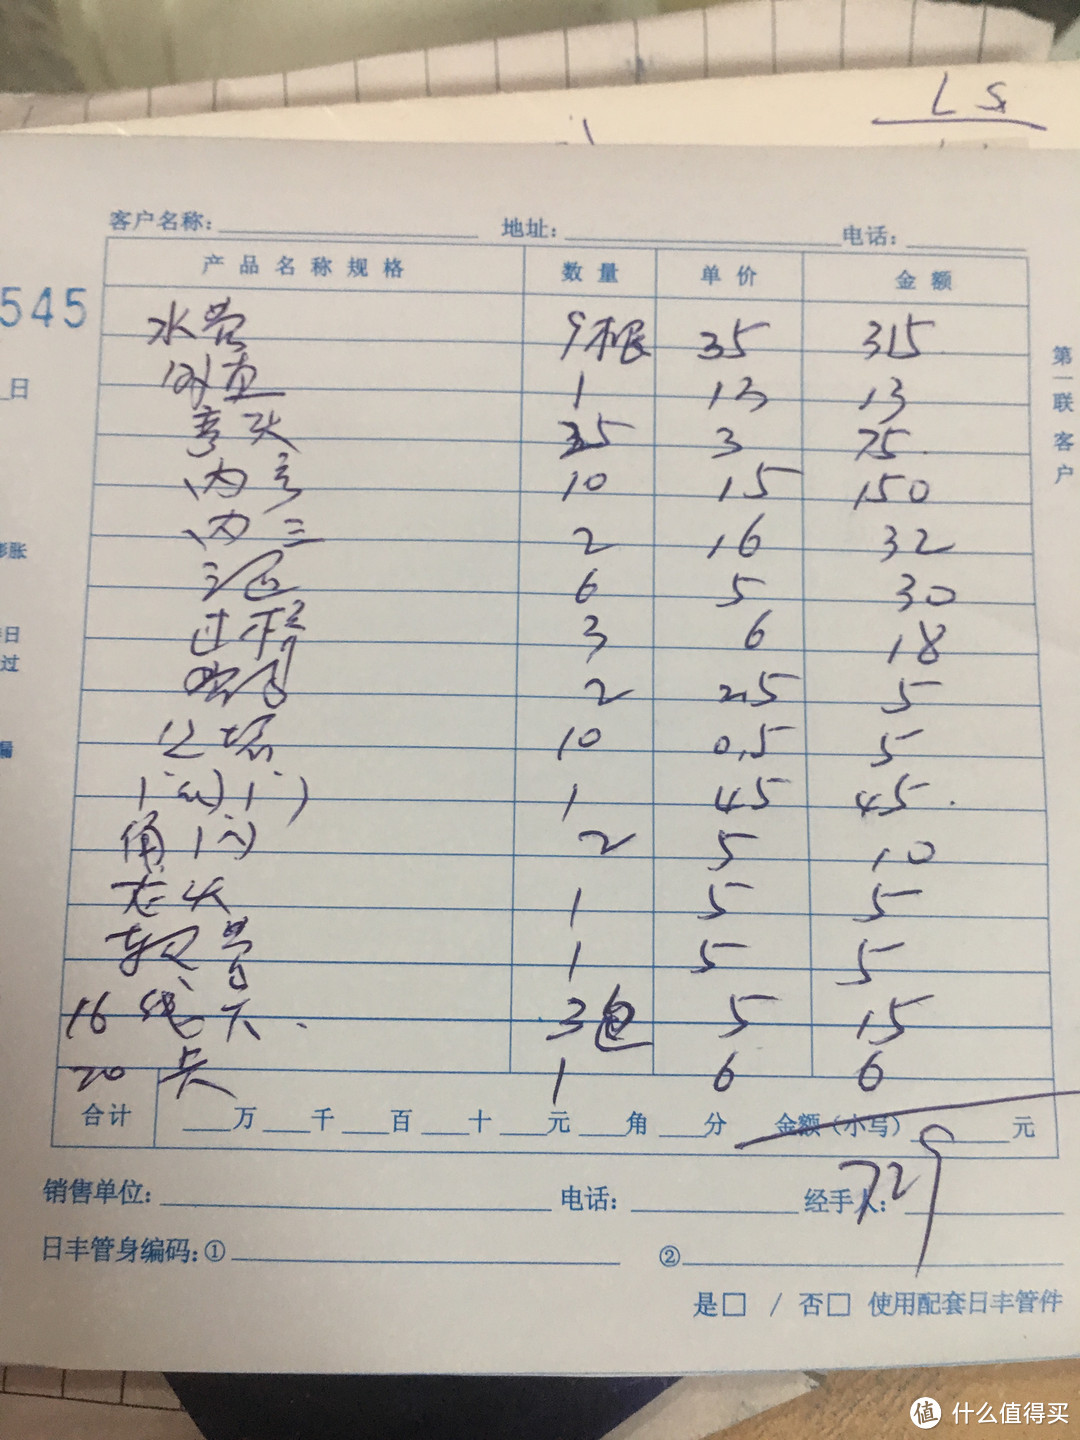 LS
客户名称: 地址: 电话:
产品名称规格 数量 单价 金额
545
水管 9根 35 315
外直 1 13 13
弯头 25 3 75
内弯 10 15 150
内三 2 16 32
三通 6 5 30
过桥 3 6 18
2 2.5 5
堵 10 0.5 5
1 45 45
角阀 2 5 10
龙头 1 5 5
软管 1 5 5
16 卡 3包 5 15
20 卡 1 6 6
合计 万 千 百 十 元 角 分 金额(小写) 元
729
销售单位: 电话: 经手人:
日丰管身编码:① ②
是□ / 否□ 使用配套日丰管件
第一联 客户
日
膨胀
日
过
漏
值 什么值得买